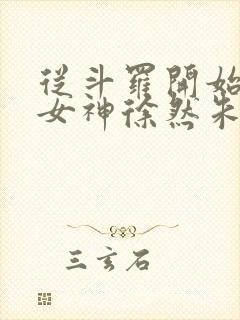 從斗羅開始
女神徐然朱
三玄石